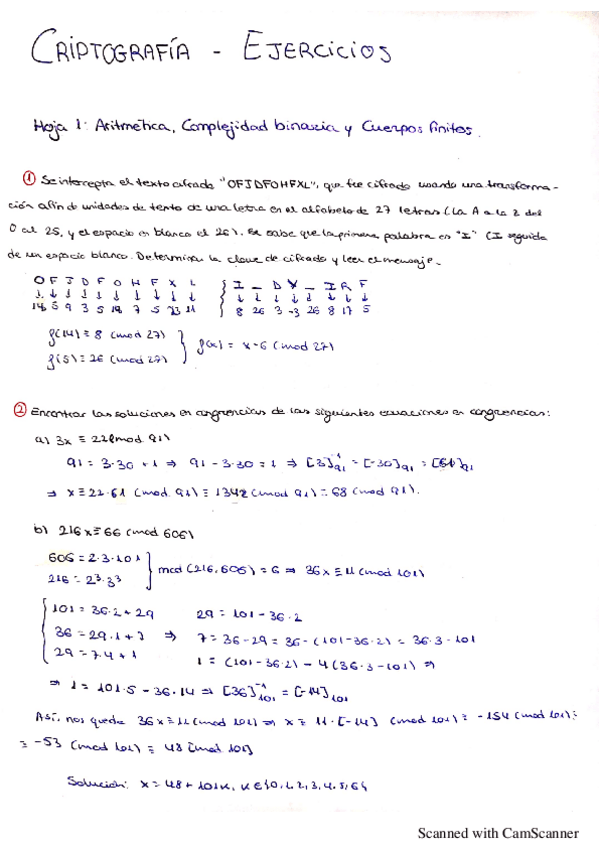 CRIPTOGRAFÍA - EJERCICIOS
Hoja 1: Aritmética, Complejidad binaria y Cuerpos finitos.
① Se intercepta el texto cifrado "OFJDFOHFXL", que fue cifrado usando una transforma-
ción afín de unidades de texto de una letra en el alfabeto de 27 letras (La A a la Z del
0 al 25, y el espacio en blanco el 26). Se sabe que la primera palabra es "I" (I seguida
de un espacio blanco. Determinar la clave de cifrado y leer el mensaje.
O F J D F O H F X L { I _ D X _ I R F
↓ ↓ ↓ ↓ ↓ ↓ ↓ ↓ ↓ ↓ ↓ ↓ ↓ ↓ ↓ ↓ ↓ ↓
14 5 9 3 5 14 7 5 23 11 8 26 3 -3 26 8 17 5
f(14) ≡ 8 (mod 27)
f(5) ≡ 26 (mod 27) } f(x) = x-6 (mod 27)
② Encontrar las soluciones en congruencias de las siguientes ecuaciones en congruencias:
a) 3x ≡ 22 (mod 91)
91 = 3·30 + 1 ⇒ 91 - 3·30 = 1 ⇒ [3]⁻¹₉₁ = [-30]₉₁ = [61]₉₁
⇒ x ≡ 22·61 (mod 91) ≡ 1342 (mod 91) ≡ 68 (mod 91).
b) 216x ≡ 66 (mod 606)
606 = 2·3·101
216 = 2³·3³ } mcd (216, 606) = 6 ⇒ 36x ≡ 11 (mod 101)
101 = 36·2 + 29 29 = 101 - 36·2
36 = 29·1 + 7 ⇒ 7 = 36 - 29 = 36 - (101 - 36·2) = 36·3 - 101
29 = 7·4 + 1 1 = (101 - 36·2) - 4(36·3 - 101) ⇒
⇒ 1 = 101·5 - 36·14 ⇒ [36]⁻¹₁₀₁ = [-14]₁₀₁
Así, nos queda 36x ≡ 11 (mod 101) ⇒ x ≡ 11·[-14] (mod 101) ≡ -154 (mod 101) ≡
≡ -53 (mod 101) ≡ 48 (mod 101)
Solución: x = 48 + 101k, k ∈ {0, 1, 2, 3, 4, 5, 6}
Scanned with CamScanner